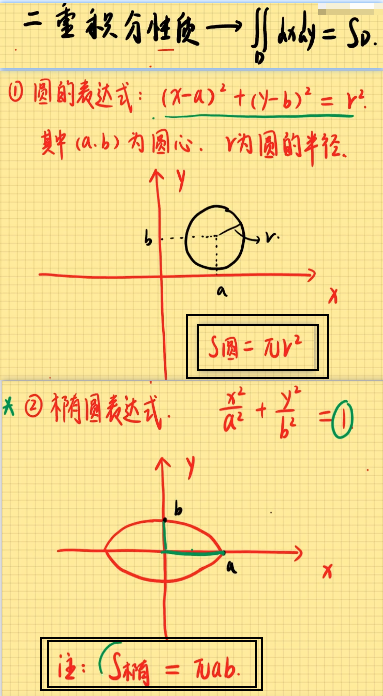 二重积分性质 → ∬_D dxdy = S_D.
① 圆的表达式: (x-a)² + (y-b)² = r².
其中 (a.b) 为圆心. r为圆的半径.
y
b
r.
a
x
S圆 = πr²
* ② 椭圆表达式. x²/a² + y²/b² = 1
y
b
a
x
注: S椭 = πab.